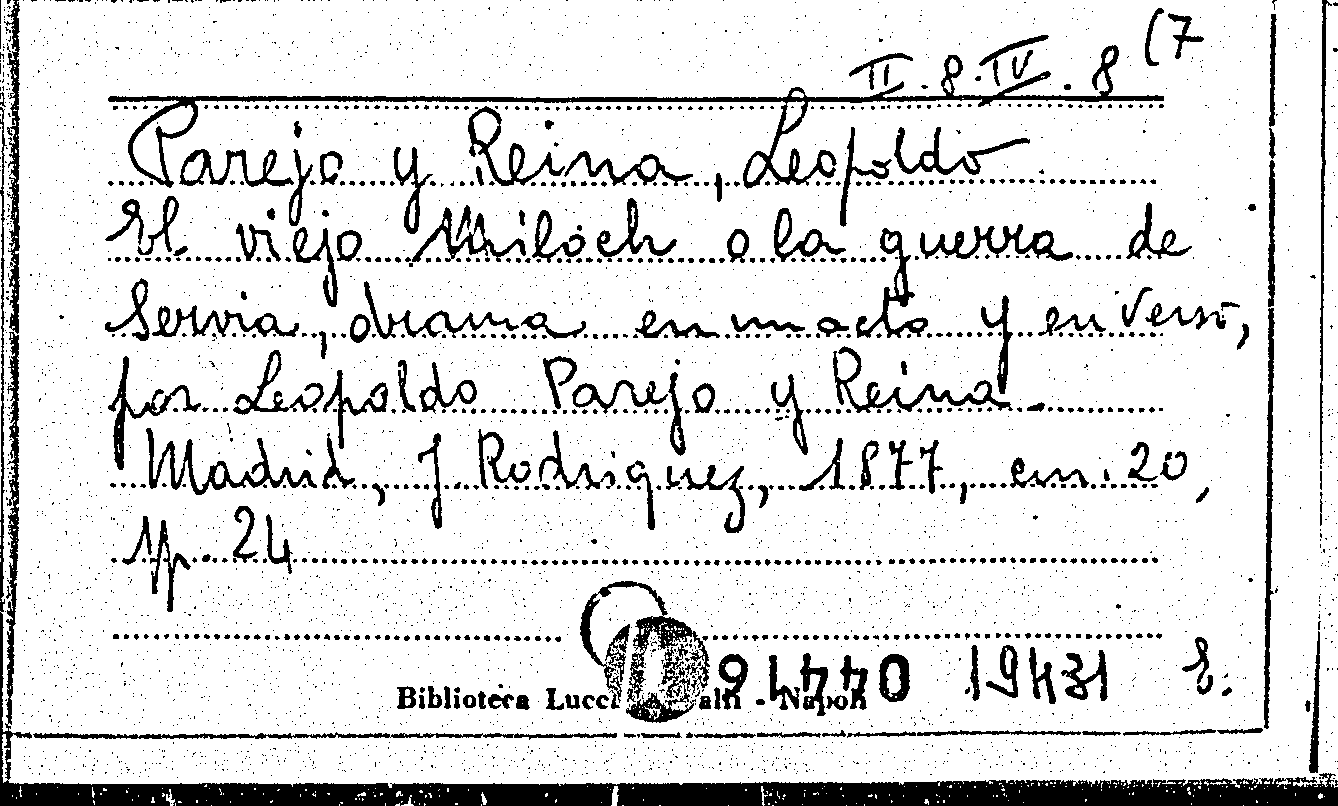 II.8.IV.8(7
Parejo y Reina, Leopoldo
El viejo Miloch o la guerra de
Servia, drama en un acto y en verso,
por Leopoldo Parejo y Reina.
Madrid, J. Rodriguez, 1877, cm. 20,
p. 24
19431 E.
Biblioteca Lucchesi Palli - Napoli